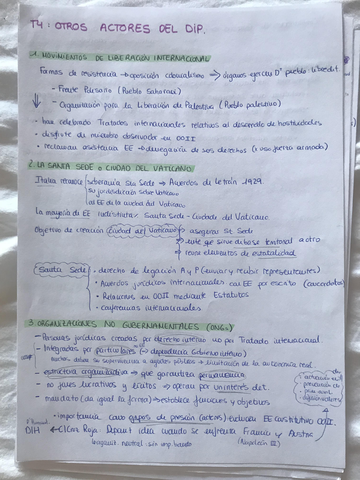 T4: OTROS ACTORES DEL DIP.
1. MOVIMIENTOS DE LIBERACIÓN INTERNACIONAL
Formas de resistencia → oposición colonialismo → órganos ejercen Dº pueblo: libredet.
- Frente Polisario (Pueblo Saharaui)
- Organización para la Liberación de Palestina (Pueblo palestino)
- han celebrado Tratados internacionales relativos al desarrollo de hostilidades
- disfrute de miembro observador en OOII
- reclaman asistencia EE → salvaguardia de sus derechos (≠ uso fuerza armada)
2. LA SANTA SEDE o CIUDAD DEL VATICANO
Italia reconoce soberanía Sta Sede → Acuerdos de Letrán 1929.
su jurisdicción sobre Vaticano
EE de la ciudad del Vaticano
La mayoría de EE indistintas: Santa Sede - Ciudad del Vaticano
Objetivo de creación Ciudad del Vaticano → asegurar St. Sede
base temporal a otro
reúne elementos de estatalidad
Santa Sede
• derecho de legación A y P (enviar y recibir representantes)
• Acuerdos jurídicos internacionales con EE por escrito (concordatos)
• Relaciones en OOII mediante Estatutos
• conferencias internacionales
3. ORGANIZACIONES NO GUBERNAMENTALES (ONGs)
- Personas jurídicas creadas por derecho interno no por Tratado internacional
- Integradas por particulares → dependencia Gobierno interno
fondos públicos → limitación de la autonomía real
- estructura organizativa → que garantiza permanencia
- no fines lucrativos y lícitos → operan por un interés det.
- mandato (da igual la forma) → establece funciones y objetivos
- importancia como grupos de presión (actores) incluyen EE constitutivo OOII.
DIH ← CICruz Roja: Dunant idea cuando se enfrenta Francia y Austria
(Napoleón III)